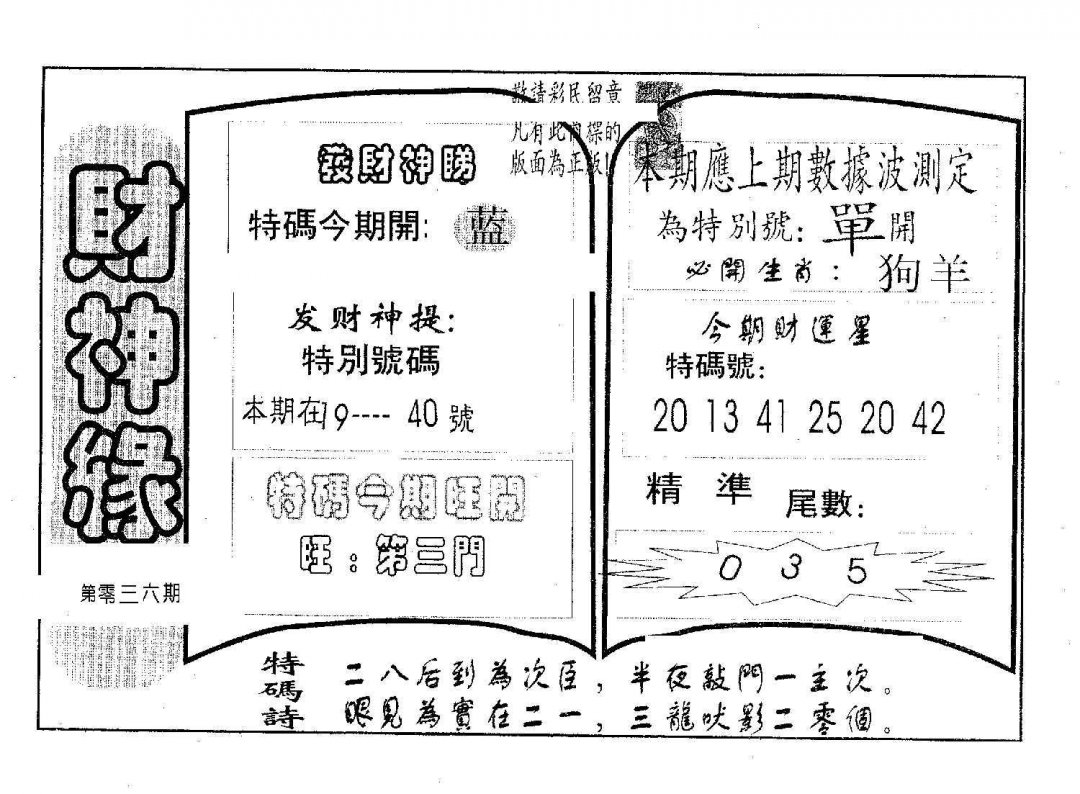 財神緣
第零三六期
敬請彩民留意
凡有此商標的
版面為正版!
發財神睇
特碼今期開: 藍
发财神提:
特別號碼
本期在19---- 40號
特碼今期旺開
旺:第三門
本期應上期數據波測定
為特別號: 單開
必開生肖: 狗羊
今期財運星
特碼號:
20 13 41 25 20 42
精準 尾數:
0 3 5
特碼詩
二八后到為次臣,半夜敲門一主次。
眼見為實在二一,三龍吠影二零個。